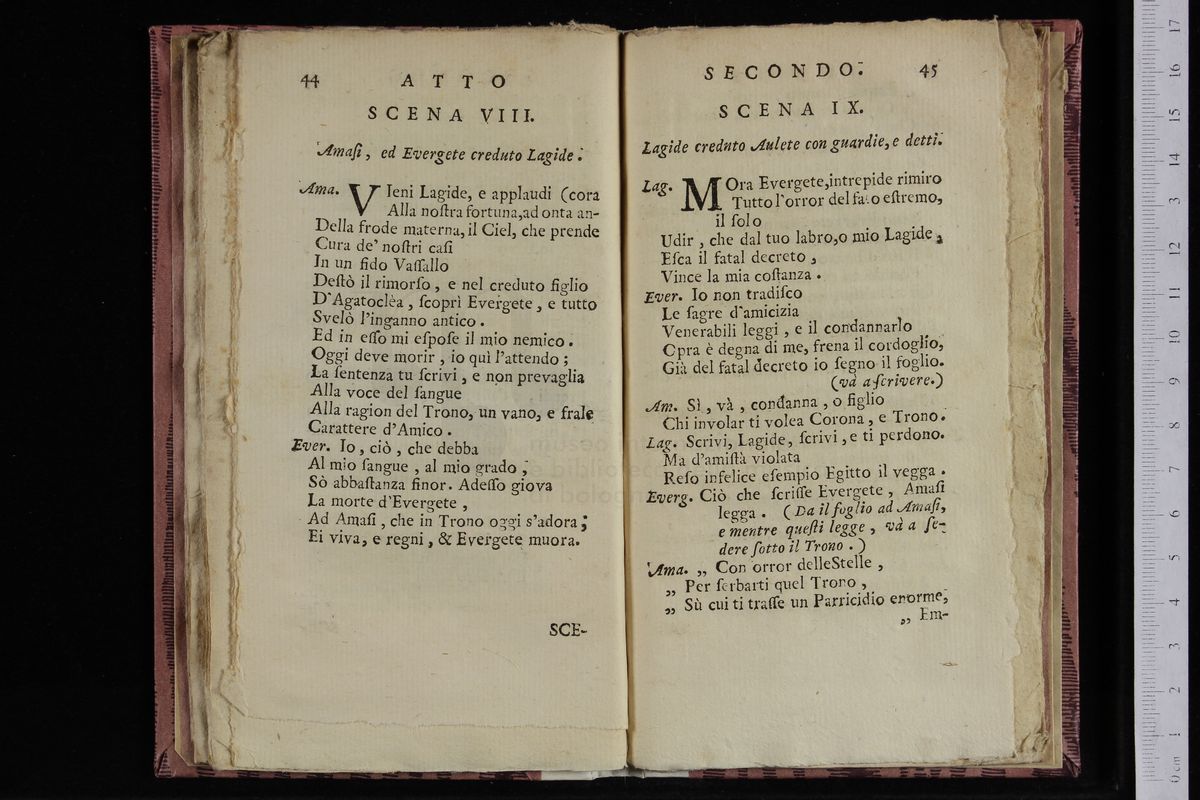 44 ATTO
SCENA VIII.
Amaſi, ed Evergete creduto Lagide.
Ama. VIeni Lagide, e applaudi (cora
Alla noſtra fortuna,ad onta an-
Della frode materna,il Ciel, che prende
Cura de' noſtri caſi
In un fido Vaſſallo
Deſtò il rimorſo, e nel creduto figlio
D'Agatoclèa, ſcoprì Evergete, e tutto
Svelò l'inganno antico.
Ed in eſſo mi eſpoſe il mio nemico.
Oggi deve morir, io quì l'attendo;
La ſentenza tu ſcrivi, e non prevaglia
Alla voce del ſangue
Alla ragion del Trono, un vano, e frale
Carattere d'Amico.
Ever. Io, ciò, che debba
Al mio ſangue, al mio grado,
Sò abbaſtanza finor. Adeſſo giova
La morte d'Evergete,
Ad Amaſi, che in Trono oggi s'adora;
Ei viva, e regni, & Evergete muora.
SCE-
SECONDO. 45
SCENA IX.
Lagide creduto Aulete con guardie, e detti.
Lag. MOra Evergete,intrepide rimiro
Tutto l'orror del fato eſtremo,
il ſolo
Udir, che dal tuo labro,o mio Lagide,
Eſca il fatal decreto,
Vince la mia coſtanza.
Ever. Io non tradiſco
Le ſagre d'amicizia
Venerabili leggi, e il condannarlo
Opra è degna di me, frena il cordoglio,
Già del fatal decreto io ſegno il foglio.
(và a ſcrivere.)
Am. Sì, và, condanna, o figlio
Chi involar ti volea Corona, e Trono.
Lag. Scrivi, Lagide, ſcrivi,e ti perdono.
Ma d'amiſtà violata
Reſo infelice eſempio Egitto il vegga.
Everg. Ciò che ſcriſſe Evergete, Amaſi
legga. (Da il foglio ad Amaſi,
e mentre queſti legge, và a ſe-
dere ſotto il Trono.)
Ama. „ Con orror delleStelle,
„ Per ſerbarti quel Trono,
„ Sù cui ti traſſe un Parricidio enorme,
„ Em-